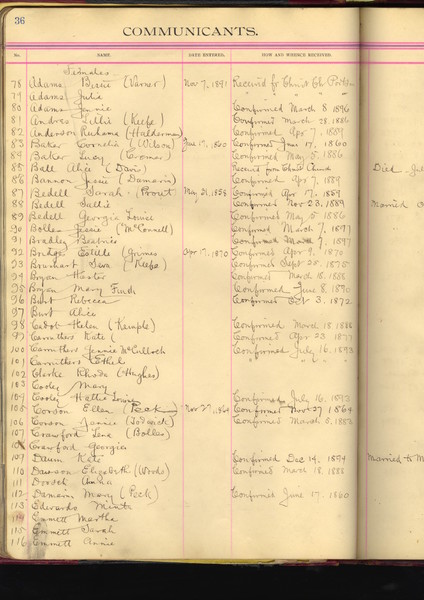 36
COMMUNICANTS.
No. NAME. DATE ENTERED. HOW AND WHENCE RECEIVED.
Females
78 Adams Bessie (Varner) Nov 7, 1891 Received fr Christ Ch
79 Adams Julia " "
80 Adams Jennie Confirmed March 8 1896
81 Andres Lillie (Keefe) Confirmed March 28, 1886
82 Anderson Ruhama (Halderman) Confirmed Apr 7, 1889
83 Baker Cornelia (Wilson) June 17, 1860 Confirmed June 17, 1860
84 Baker Lucy (Cromer) Confirmed May 5, 1886
85 Ball Alice (Davis) Received from Christ Church Died
86 Bannon Jessie (Damarin) Confirmed Apr 7, 1889
87 Bedell Sarah (Prout) May 21, 1856 Confirmed Apr 7, 1889
88 Bedell Sallie Confirmed Nov 23, 1889 Married
89 Bedell Georgia Louise Confirmed May 5 1886
90 Bolles Jessie (McConnell) Confirmed March 7, 1897
91 Bradley Beatrice Confirmed March 7, 1897
92 Bridge Estilda (Grimes) Apr 17, 1870 Confirmed Apr 9, 1870
93 (Keefe) Confirmed Sept 28, 1875
94 Bryan Hester Confirmed March 18, 1888
95 Bryan Mary Finch Confirmed June 8, 1890
96 Burt Rebecca Confirmed Oct 3, 1872
97 Burt Alice
98 Cabot Helen (Kemple) Confirmed March 18 1888
99 Carruthers Kate ( Confirmed Apr 23, 1877
100 Carruthers Jennie McCulloch Confirmed July 16, 1893
101 Carruthers Ethel " " "
102 Clarke Rhoda (Hughes)
103 Cooley Mary
104 Cooley Hattie Louise Confirmed July 16, 1893
105 Corson Ellen (Peck) Nov 27, 1864 Confirmed Nov 27 1864
106 Corson Jennie Confirmed March 5, 1882
107 Crawford Lena (Bolles)
Crawford Georgie
109 Daum Kate Confirmed Dec 14, 1894 Married to
110 Dawson Elizabeth (Woods) Confirmed March 18, 1888
111 Dorsch Anna
112 Damarin Mary (Peck) Confirmed June 17, 1860
113 Edwards Minta
114 Emmett Martha
115 Emmett Sarah
116 Emmett Annie